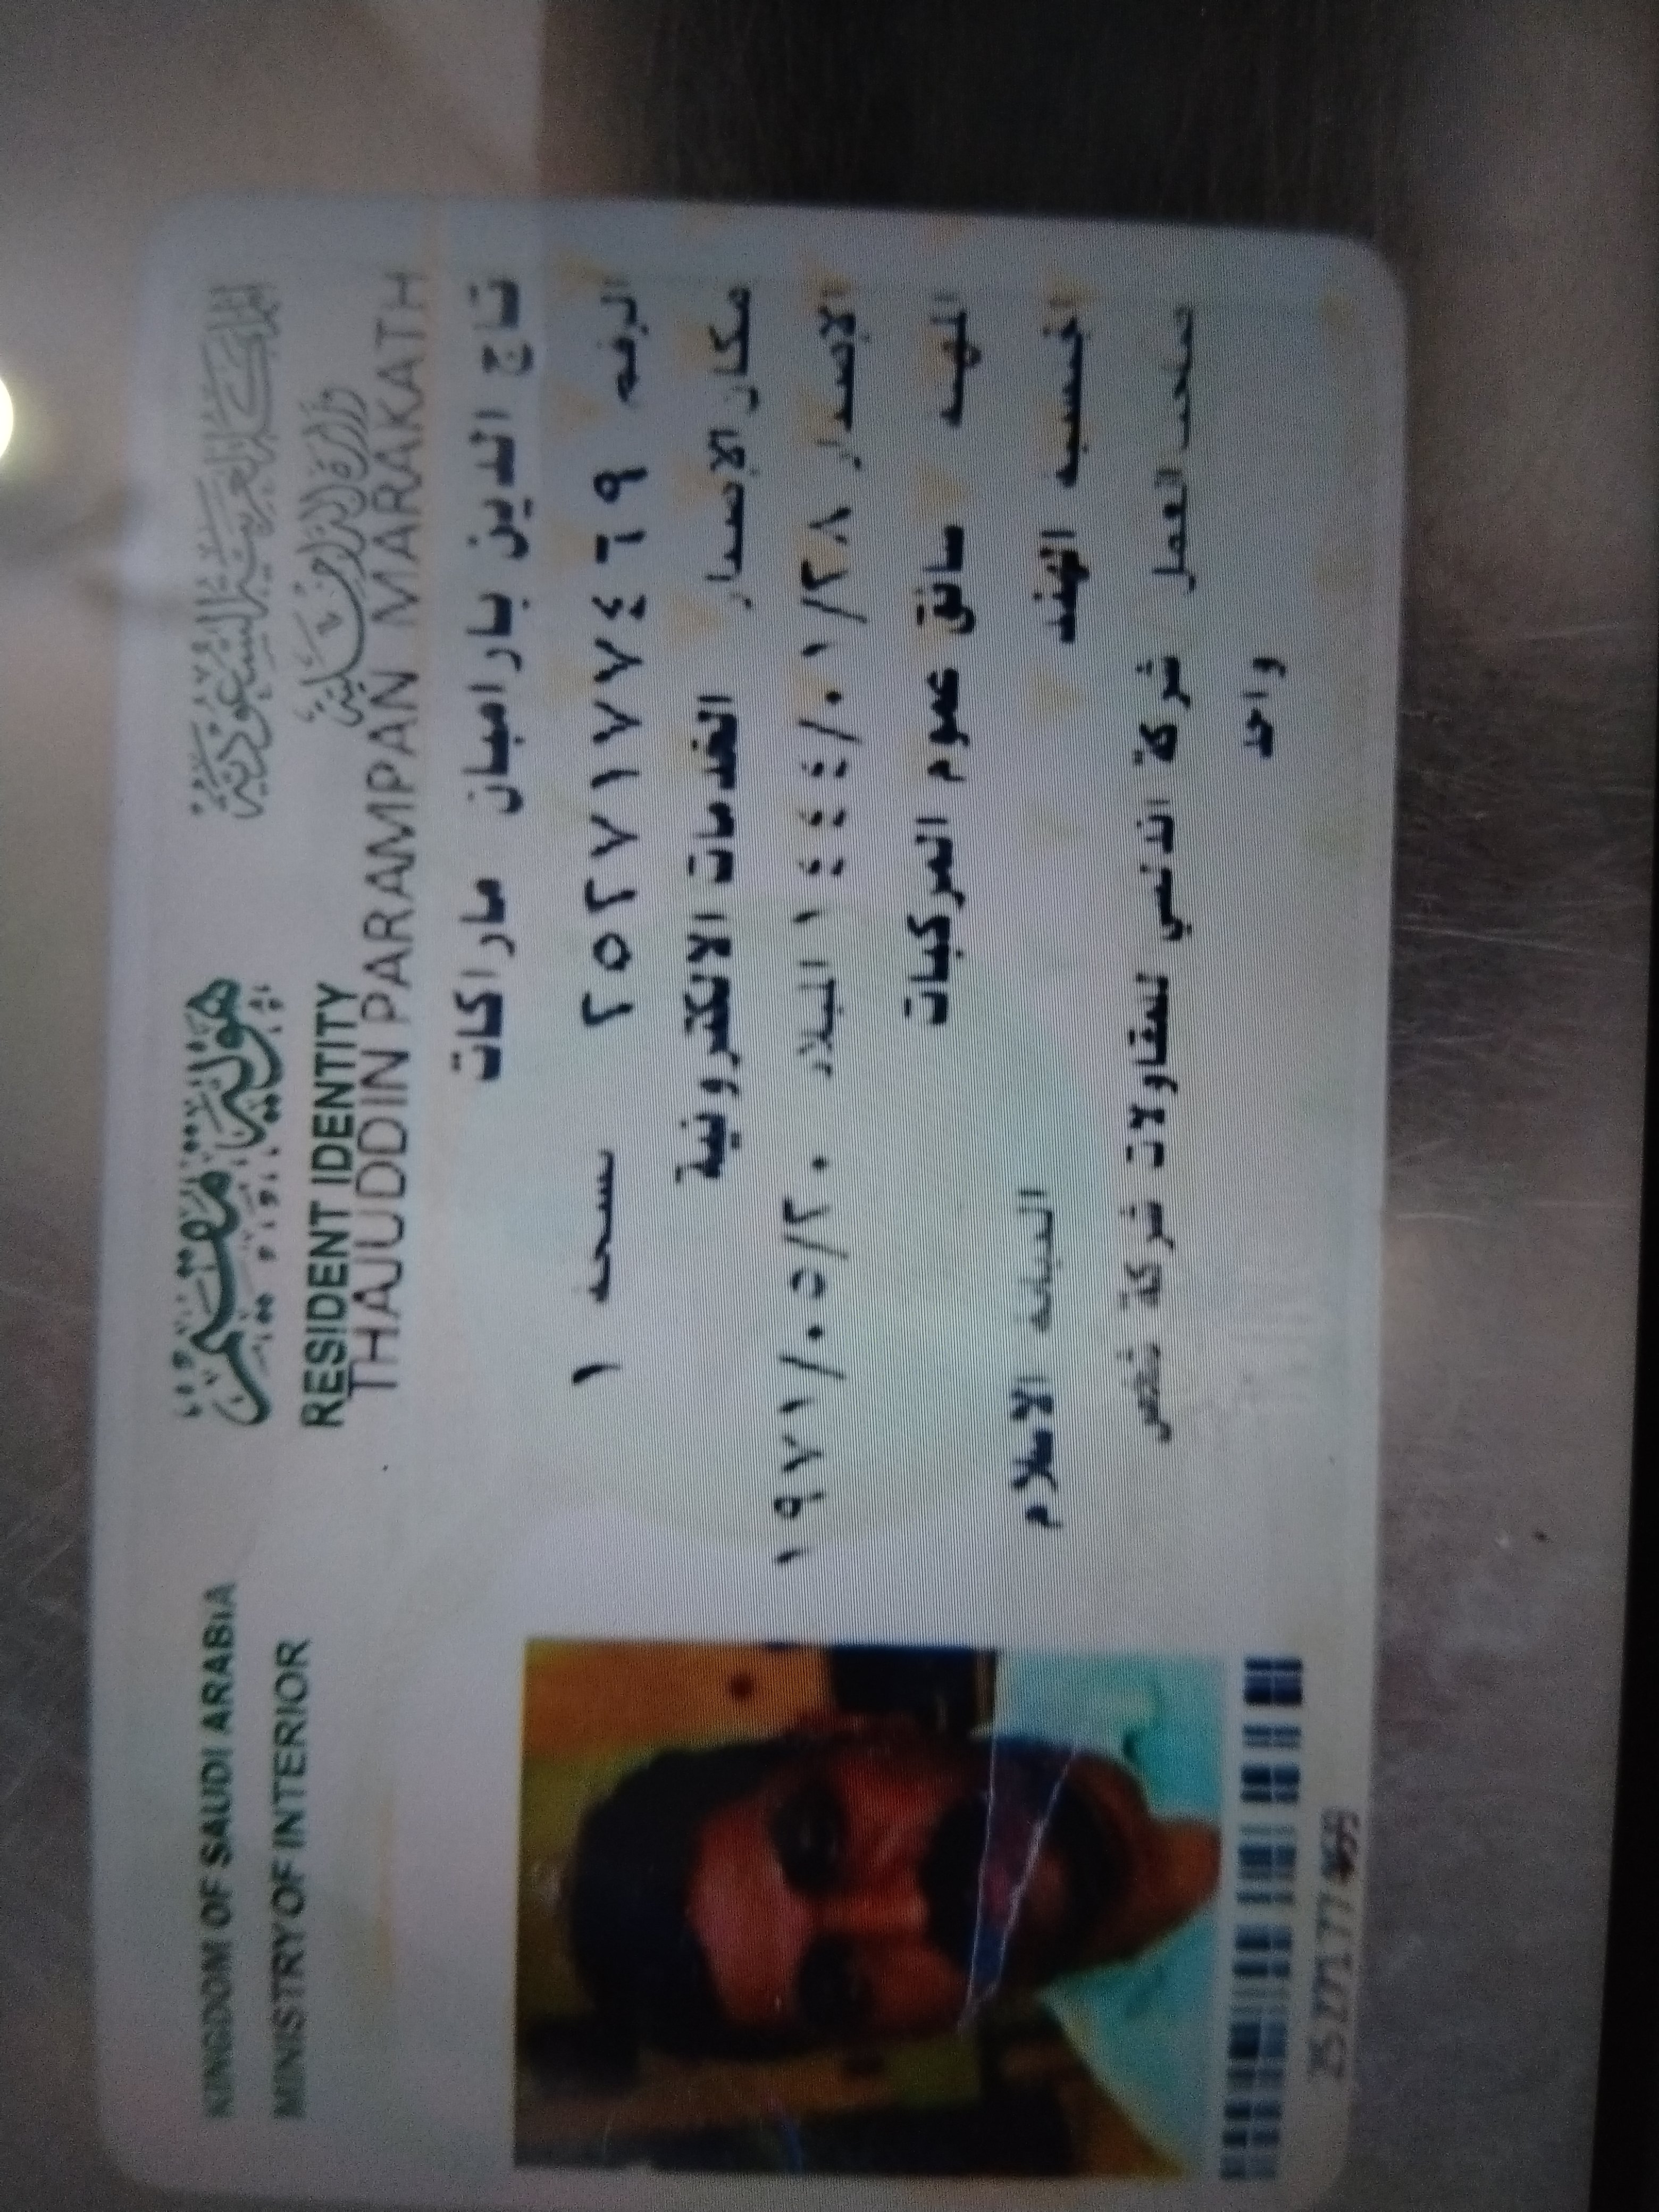 KINGDOM OF SAUDI ARABIA
MINISTRY OF INTERIOR
هوية مقيم
RESIDENT IDENTITY
المملكة العربية السعودية
وزارة الداخلية
THAJUDDIN PARAMPAN MARAKATH
تاج الدين بارامبان ماراكات
الرقم ٢٥٢٧١٧٧٤٦٩ نسخة ١
مكان الإصدار الخدمات الالكترونية
الإصدار ١٤٤٤/٠١/٢٨ الميلاد ١٩٧١/٠٥/٢٠
المهنة سائق عموم المركبات
الجنسية الهند الديانة الاسلام
صاحب العمل شركة اندلسي للمقاولات شركة شخص
واحد
2527177469